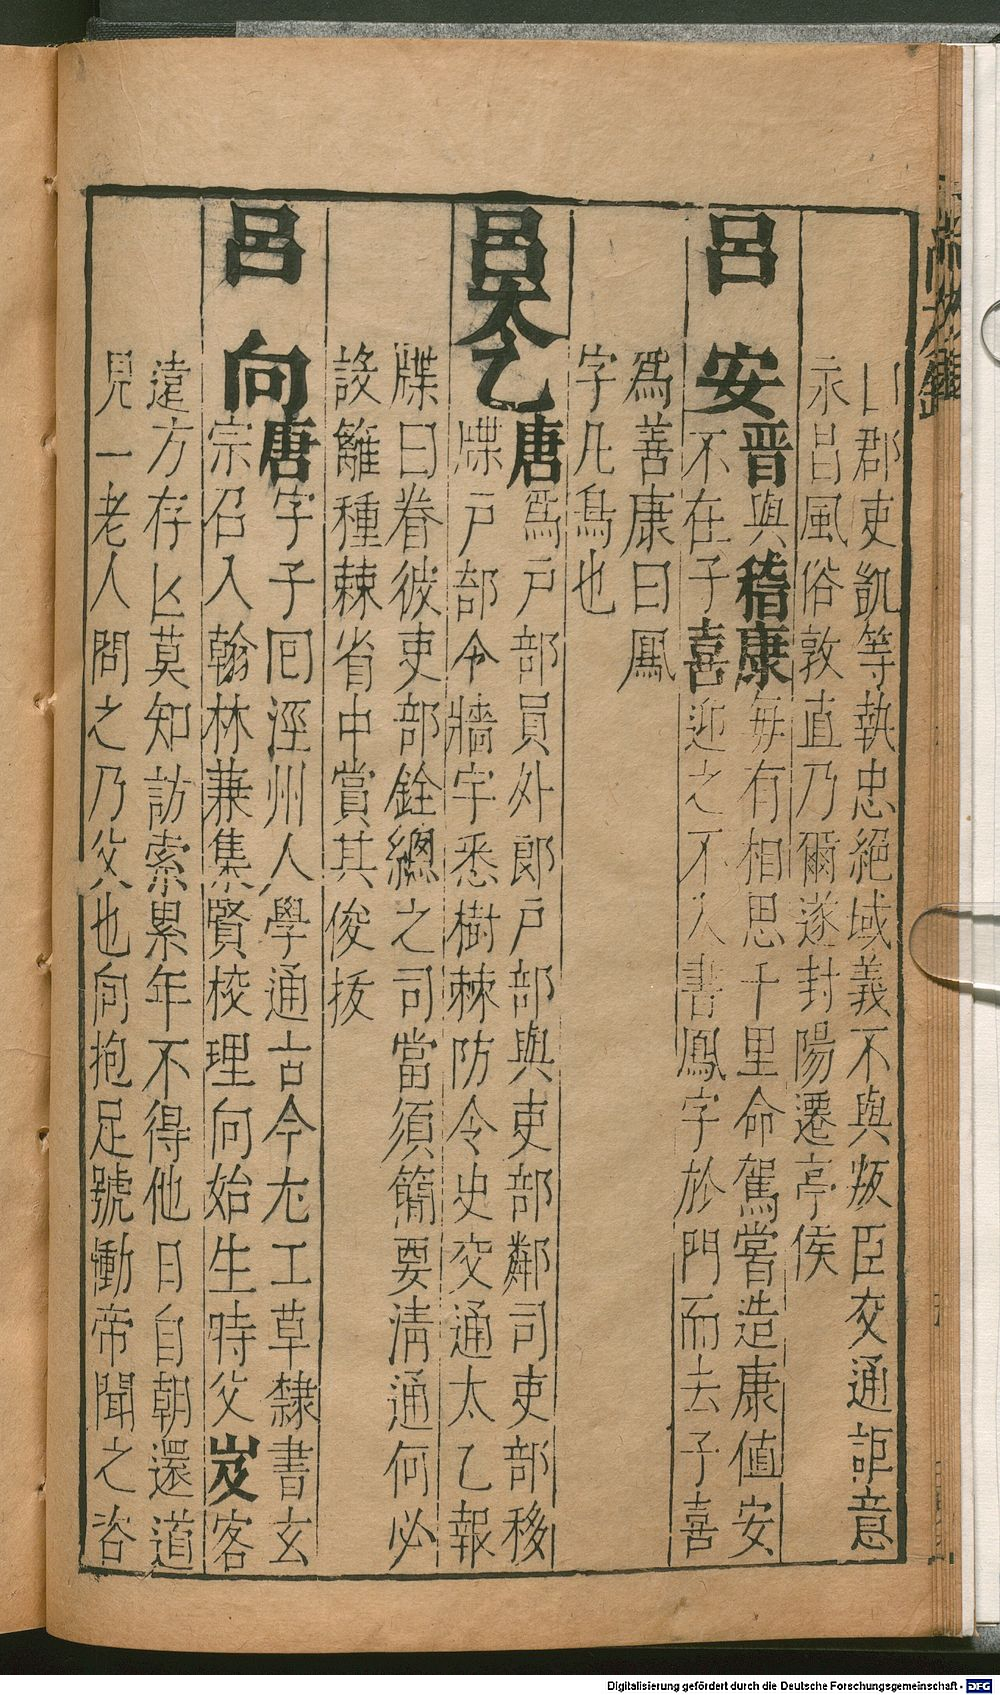 郡吏凱等執忠絕域義不與叛臣交通詎意
永昌風俗敦直乃爾遂封陽遷亭侯
呂安晋與稽康每有相思千里命駕嘗造康值安
不在子喜迎之不入書鳳字於門而去子喜
爲善康曰鳳
字凡鳥也
呂太乙唐爲戸部員外郎戸部與吏部鄰司吏部移
牒戸部令牆宇悉樹棘防令史交通太乙報
牒曰眷彼吏部銓緫之司當須簡要清通何必
設籬種棘省中賞其俊拔
呂向唐字子囘涇州人學通古今尤工草隸書玄
宗召入翰林兼集賢校理向始生時父岌客
遠方存亾莫知訪索累年不得他日自朝還道
見一老人問之乃父也向抱足號慟帝聞之咨
Digitalisierung gefördert durch die Deutsche Forschungsgemeinschaft - DFG